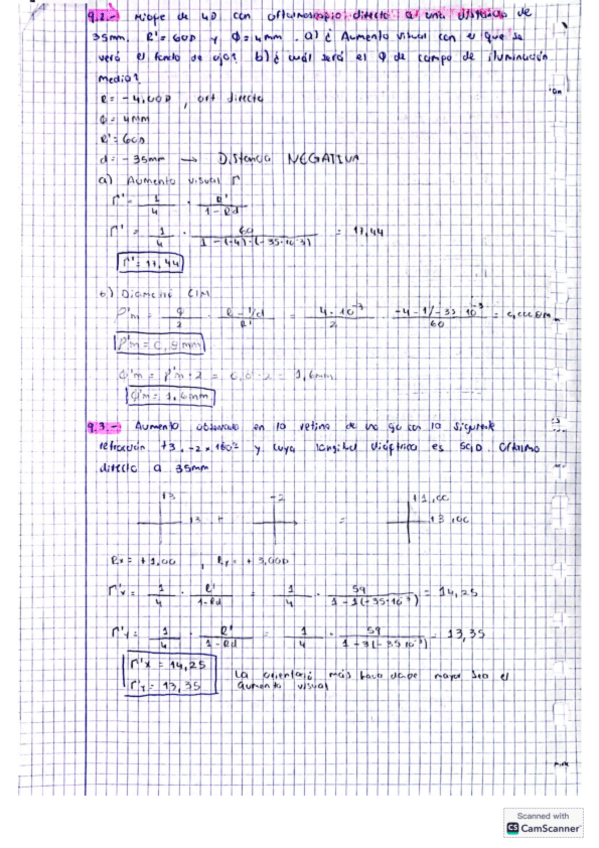 9.2.- Miope de 4D con oftalmoscopio directo a una distancia de
35mm. R'= 60D y Φ= 4mm. a) ¿ Aumento visual con el que se
verá el fondo de ojo? b) ¿ cuál será el Φ de campo de iluminación
media?
R= -4,00D, oft directo
Φ= 4mm
R'= 60D
d= -35mm → Distancia NEGATIVA
a) Aumento visual Γ
Γ'= 1/4 · R'/1-Rd
Γ'= 1/4 · 60/1-(-4)·(-35·10⁻³) = 17,44
Γ'= 17,44
b) Diámetro CIM
P'm = Φ/2 · R-1/d/R' = 4·10⁻³/2 · -4-1/-35·10⁻³/60 =
P'm = 0,8mm
Φ'm = P'm·2 = 0,8·2 = 1,6mm
Φ'm= 1,6mm
9.3.- Aumento observado en la retina de un ojo con la siguiente
refracción +3, -2 × 180º y cuya longitud dióptrica es 59D. Oftalmo
directo a 35mm
+3 -2 +1,00
+3 + = +3,00
Rx= +1,00 , Ry= +3,00D
Γ'x= 1/4 · R'/1-Rd = 1/4 · 59/1-1(-35·10⁻³) = 14,25
Γ'y= 1/4 · R'/1-Rd = 1/4 · 59/1-3(-35·10⁻³) = 13,35
Γ'x = 14,25 La orientació más baja donde mayor sea el
Γ'y= 13,35 aumento visual
Scanned with
CS CamScanner